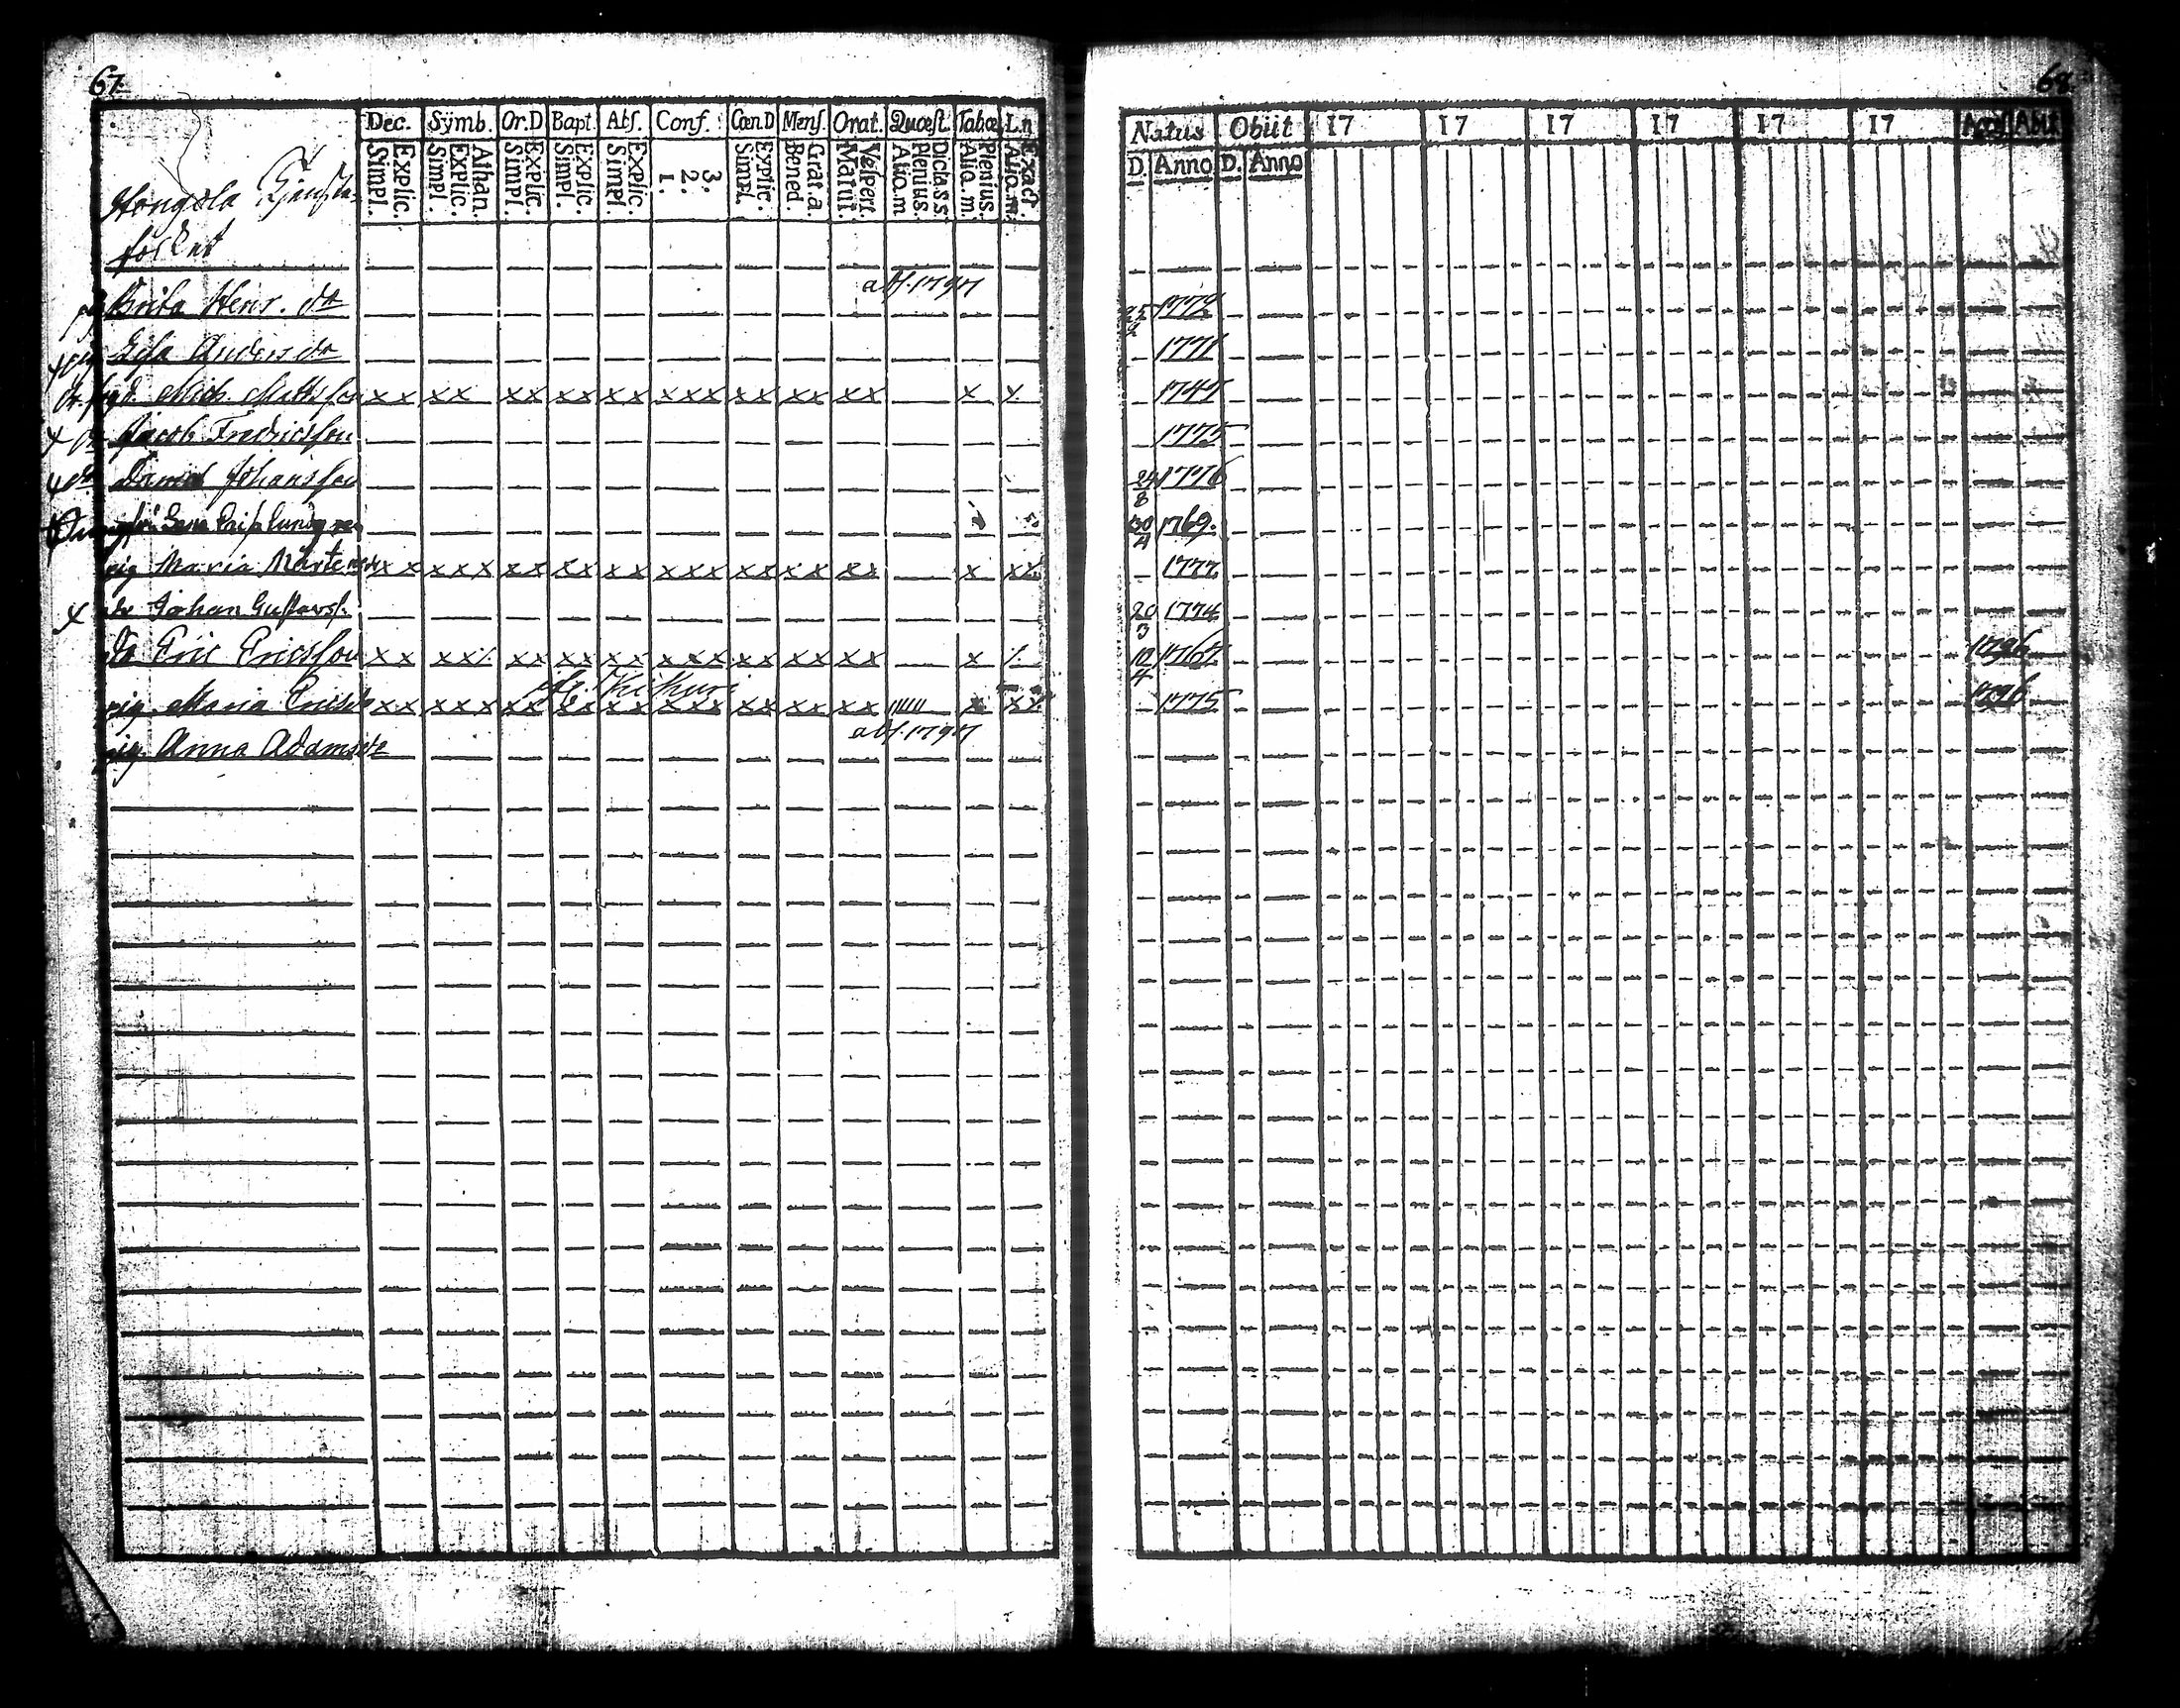 67.
Dec. Symb. Or.D Bapt. Abs. Conf. Cœn.D Mens. Orat. Quæst. Tabœ L.n
Explic. Simpl. Athan. Explic. Simpl. Explic. Simpl. Explic. Simpl. Explic. Simpl. 3. 2. 1. Explic. Simpl. Grat. a. Bened. Vespert. Matut. Dictass. Plenius. Aliq.m. Plenius. Aliq.m. Exact. Aliq.m.
folket
abs. 1797
Brita Henr. dr
Anders dr
Mich. Mattsson x x x x x x x x x x x x x x x x x x x x x
x Jacob Fredricsson
Daniel Johansson
pig Maria Mårtensdr x x x x x x x x x x x x x x x x x x x x x x x
x dr Johan Gustavs.
dr Eric Ericsson x x x x x x x x x x x x x x x x x x x x
pig. Maria Ericsdr x x x x x x x x x x x x x x x x x x x x
abs. 1797
pig. Anna Adamsdr
68.
Natus Obiit 17 17 17 17 17 17 Acc. Abit
D. Anno D. Anno
1772
1771
1747
1775
24/8 1776
30/4 1769.
1777
20/3 1774
12/4 1767 1796
1775 1796